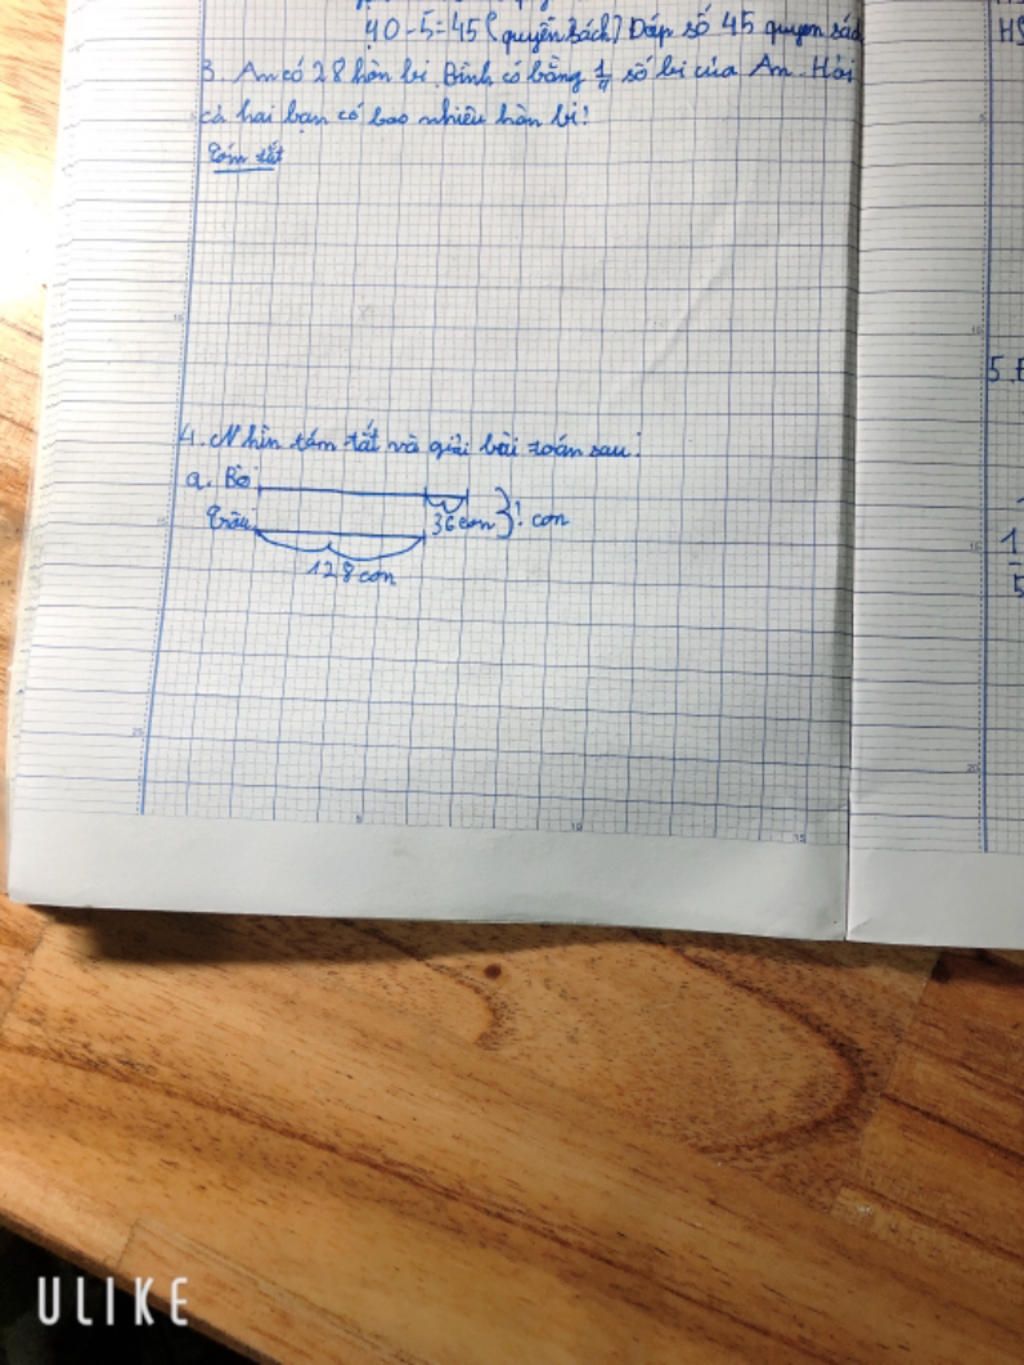 40-5=45(quyển sách) Đáp số 45 quyển sách
3. An có 28 hòn bi. Bình có bằng 1/4 số bi của An. Hỏi
cả hai bạn có bao nhiêu hòn bi?
Tóm tắt
4. Nhìn tóm tắt và giải bài toán sau:
a. Bò:
Trâu:
36 con
? con
128 con
5.
1
5
5
10
15
ULIKE